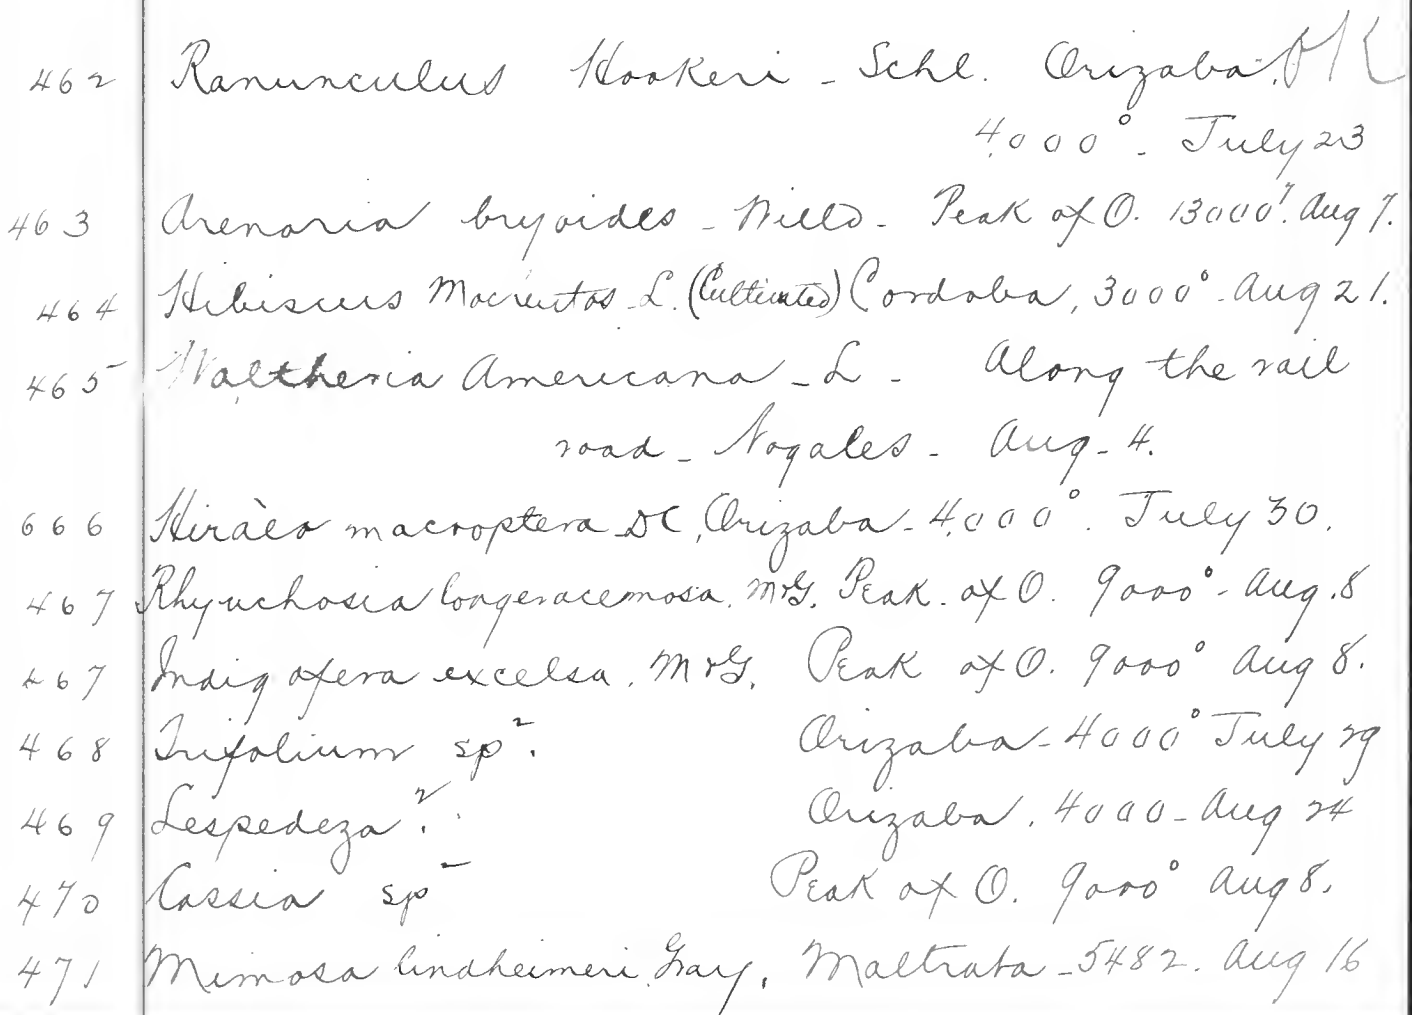 462 Ranunculus Hookeri - Schl. Orizaba. OK
4000° - July 23
463 Arenaria bryoides - Willd - Peak of O. 13000°. Aug 7.
464 Hibiscus Moscheutos - L. (Cultivated) Cordoba, 3000° - Aug 21.
465 Waltheria Americana - L - Along the rail
road - Nogales - Aug - 4.
666 Hiràea macroptera DC, Orizaba - 4000°. July 30.
467 Rhynchosia longeracemosa. M&G. Peak. of O. 9000° - Aug. 8
467 Indigofera excelsa. M&G. Peak of O. 9000° Aug 8.
468 Trifolium sp?. Orizaba - 4000° July 29
469 Lespedeza? Orizaba. 4000 - Aug 24
470 Cassia sp - Peak of O. 9000° Aug 8.
471 Mimosa lindheimeri Gray, Maltrata - 5482. Aug 16